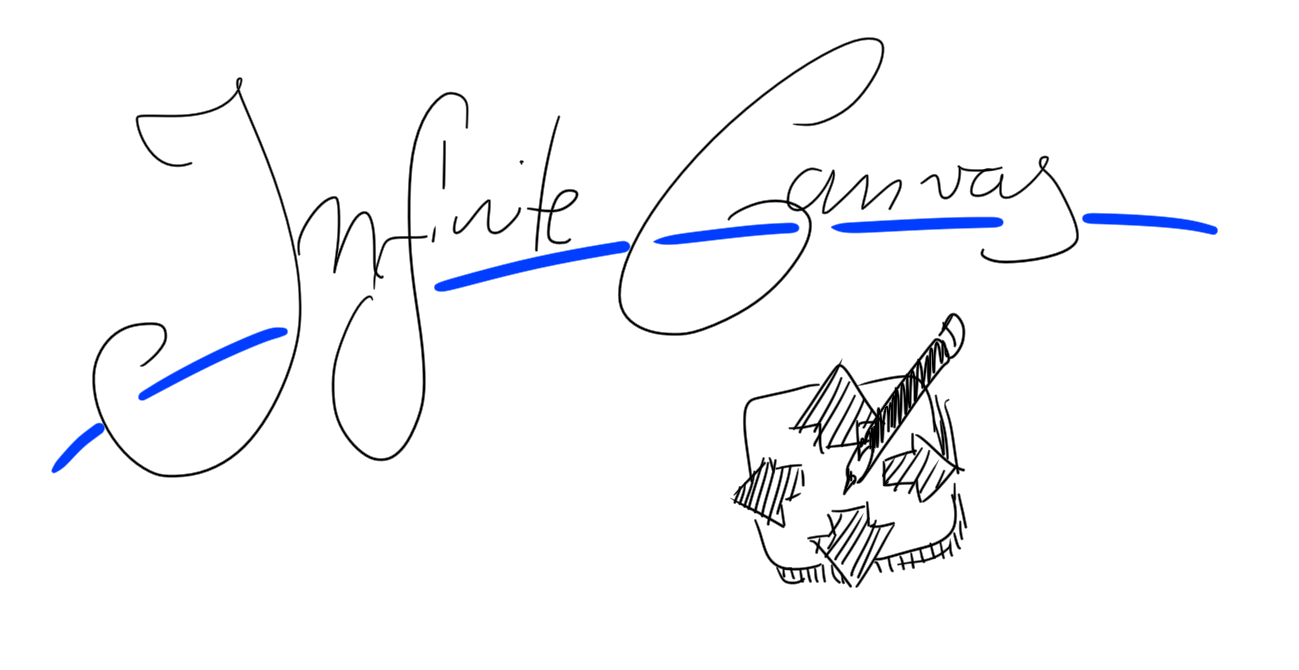 Infinite Canvas